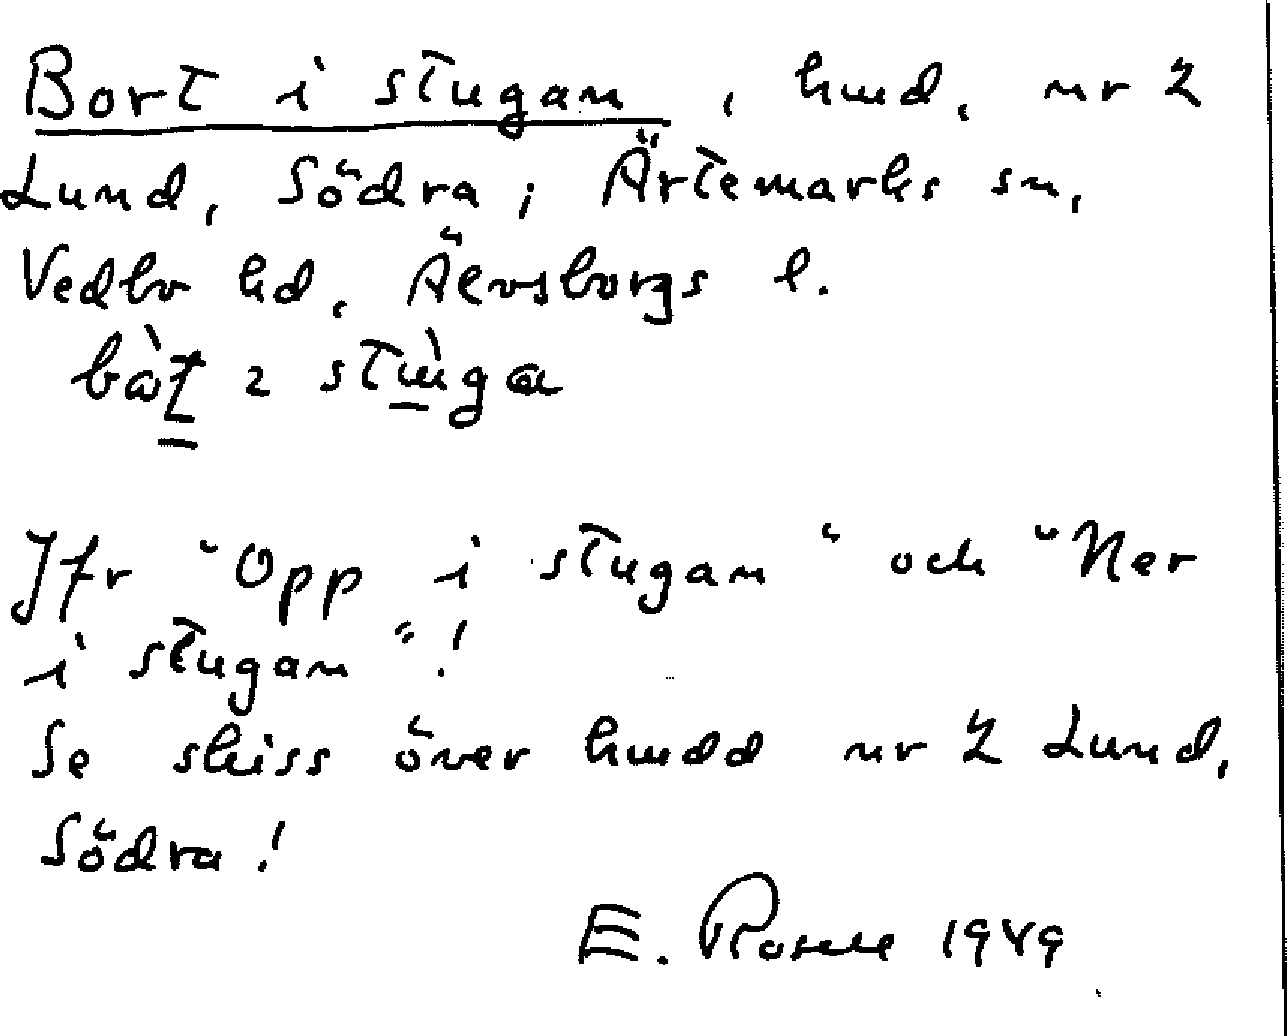 Bort i stugan, hmd, nr 2
Lund, Södra; Ärtemarks sn,
Vedbo hd, Älvsborgs l.
Jfr "Opp i stugan" och "Ner
i stugan"!
Se skiss över hmdd nr 2 Lund,
Södra!
E. 1949